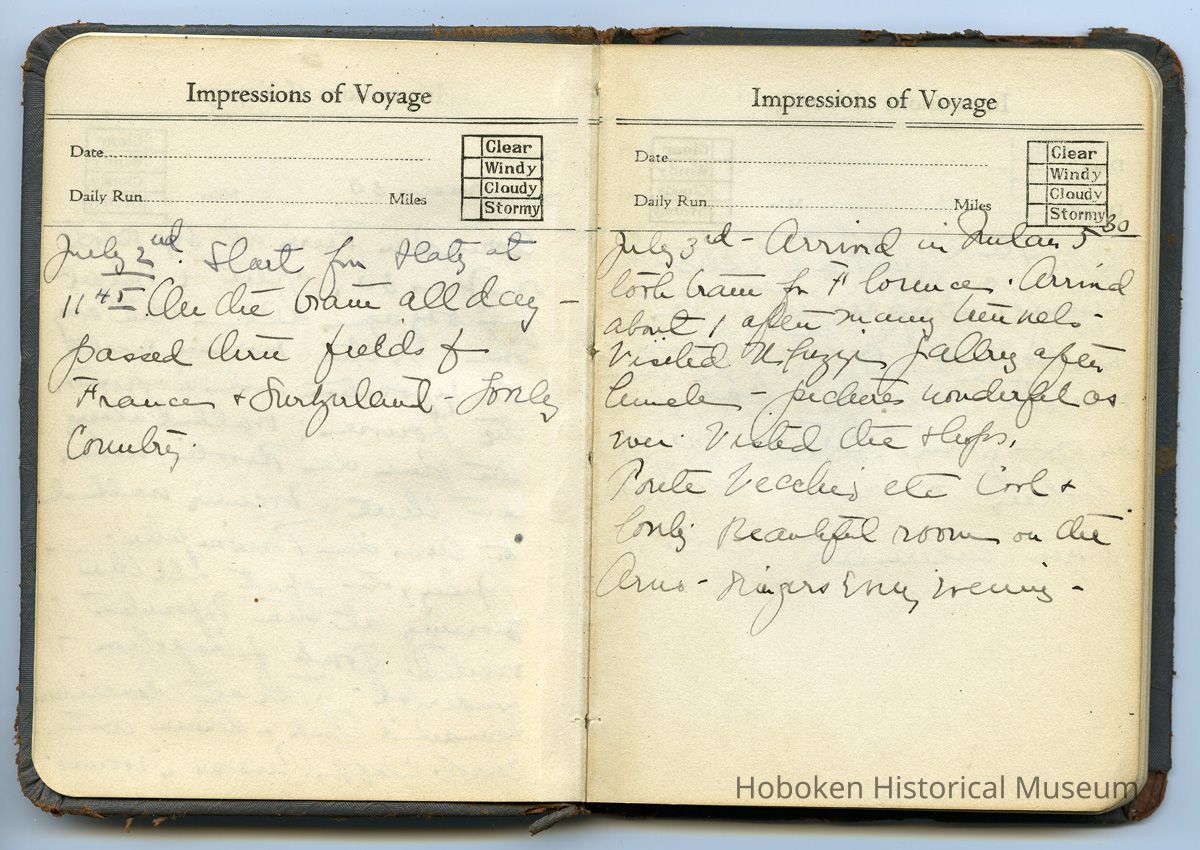 Impressions of Voyage
Date
Clear
Windy
Cloudy
Stormy
Daily Run
Miles
July 2nd. Start for Italy at
11 45 On the train all day –
passed thru fields of
France + Switzerland – Lovely
Country.
Impressions of Voyage
Date
Clear
Windy
Cloudy
Stormy
Daily Run
Miles
July 3rd – Arrived in Milan 5 30
took train for Florence. Arrived
about 1 after many tunnels –
Visited Uffizzi Gallery after
lunch – pictures wonderful as
ever. Visited the shops,
Ponte Vecchio etc Cool +
lovely Beautiful room on the
Arno – Singers every evening –
Hoboken Historical Museum